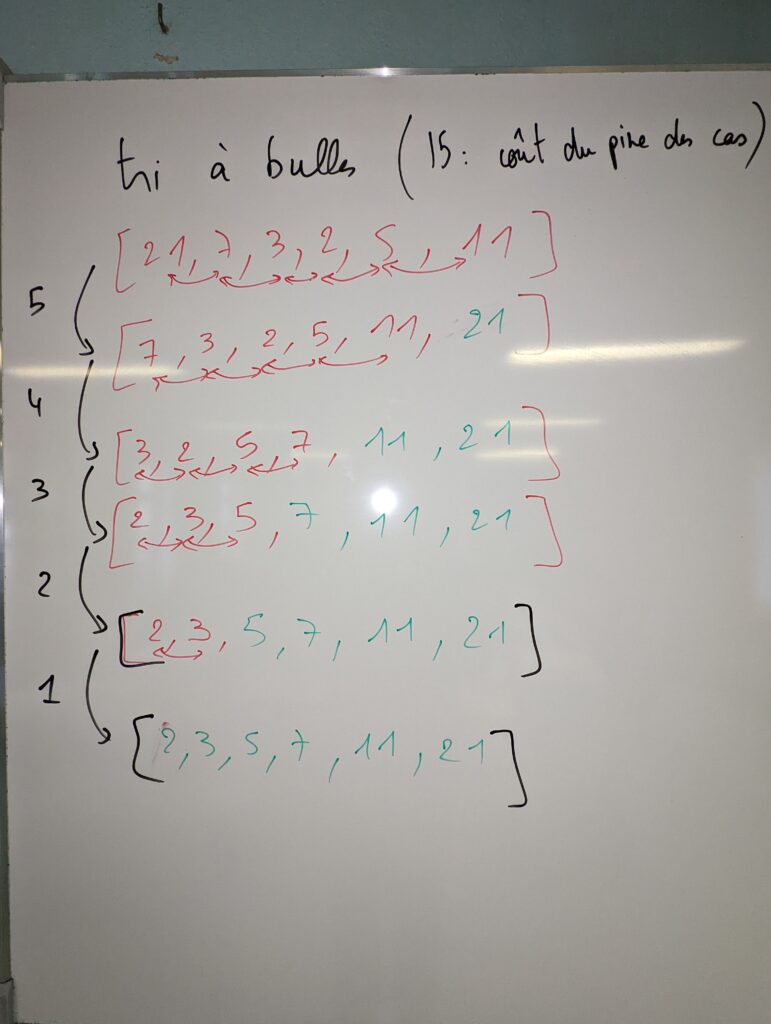 tri à bulles (15: coût du pire des cas)
[21, 7, 3, 2, 5, 11]
5
[7, 3, 2, 5, 11, 21]
4
[3, 2, 5, 7, 11, 21]
3
[2, 3, 5, 7, 11, 21]
2
[2, 3, 5, 7, 11, 21]
1
[2, 3, 5, 7, 11, 21]